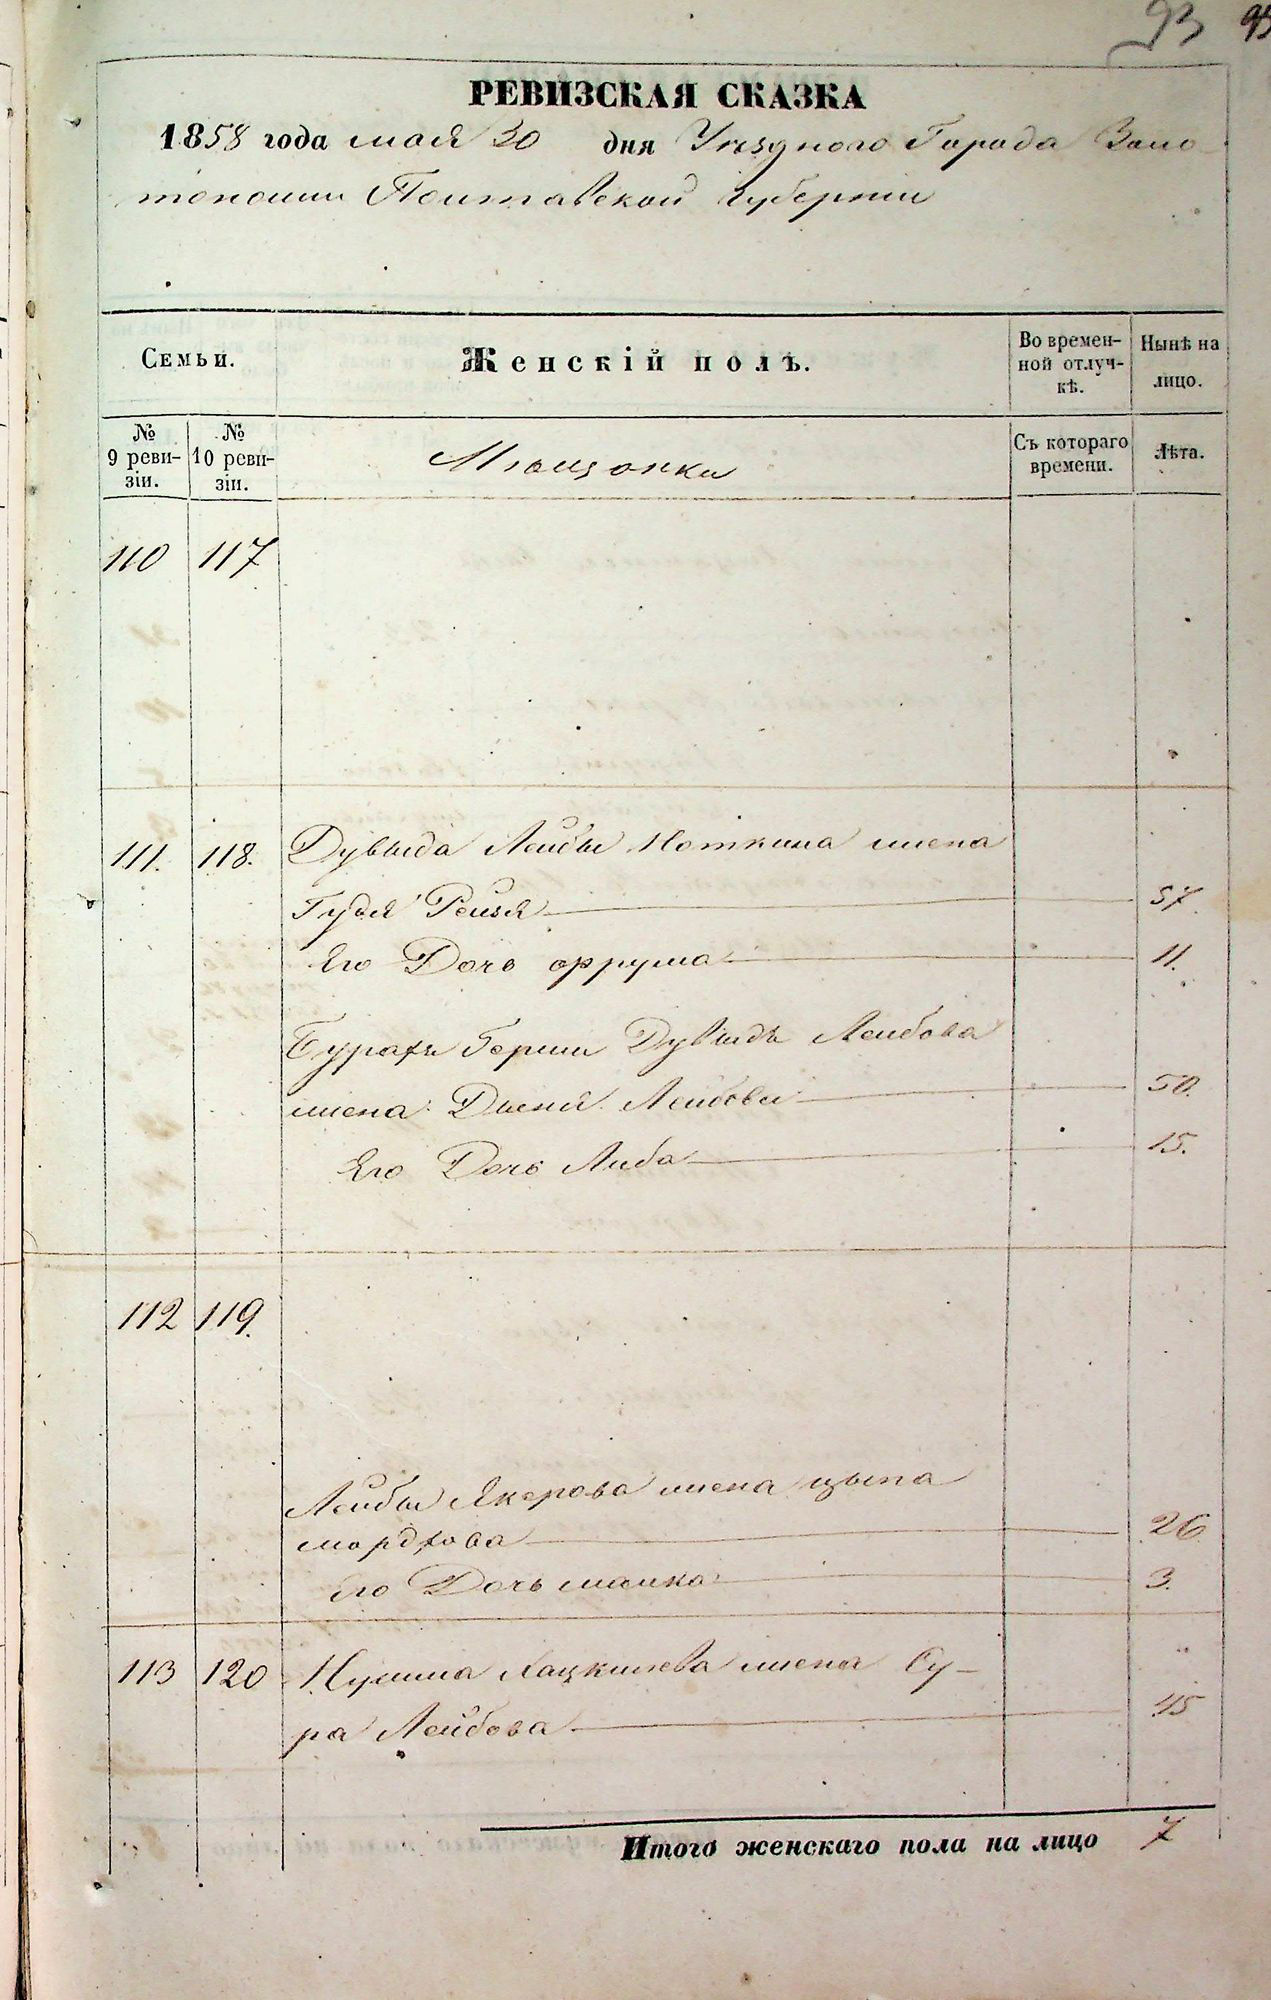 93 93
РЕВИЗСКАЯ СКАЗКА
1858 года мая 30 дня Уѣзднаго Города Золо
тоноши Полтавской губерніи
Семьи.
Женскій полъ.
Во времен-
ной отлуч-
кѣ.
Нынѣ на
лицо.
№
9 реви-
зіи.
№
10 реви-
зіи.
Мѣщанки
Съ котораго
времени.
Лѣта.
110 117
111. 118. Дувыда Лейбы Ноткина жена
Гудя Рейзя 57.
Его Дочь Фрума 11.
Герши Дувыдъ Лейбова
жена Лейбова 50.
Его Дочь Либа 15.
112 119.
Лейбы Якерова жена Цыпа
Мордхова 26
Его Дочь Малка 3.
113 120 жена Су-
ра Лейбова 45
Итого женскаго пола на лицо 7